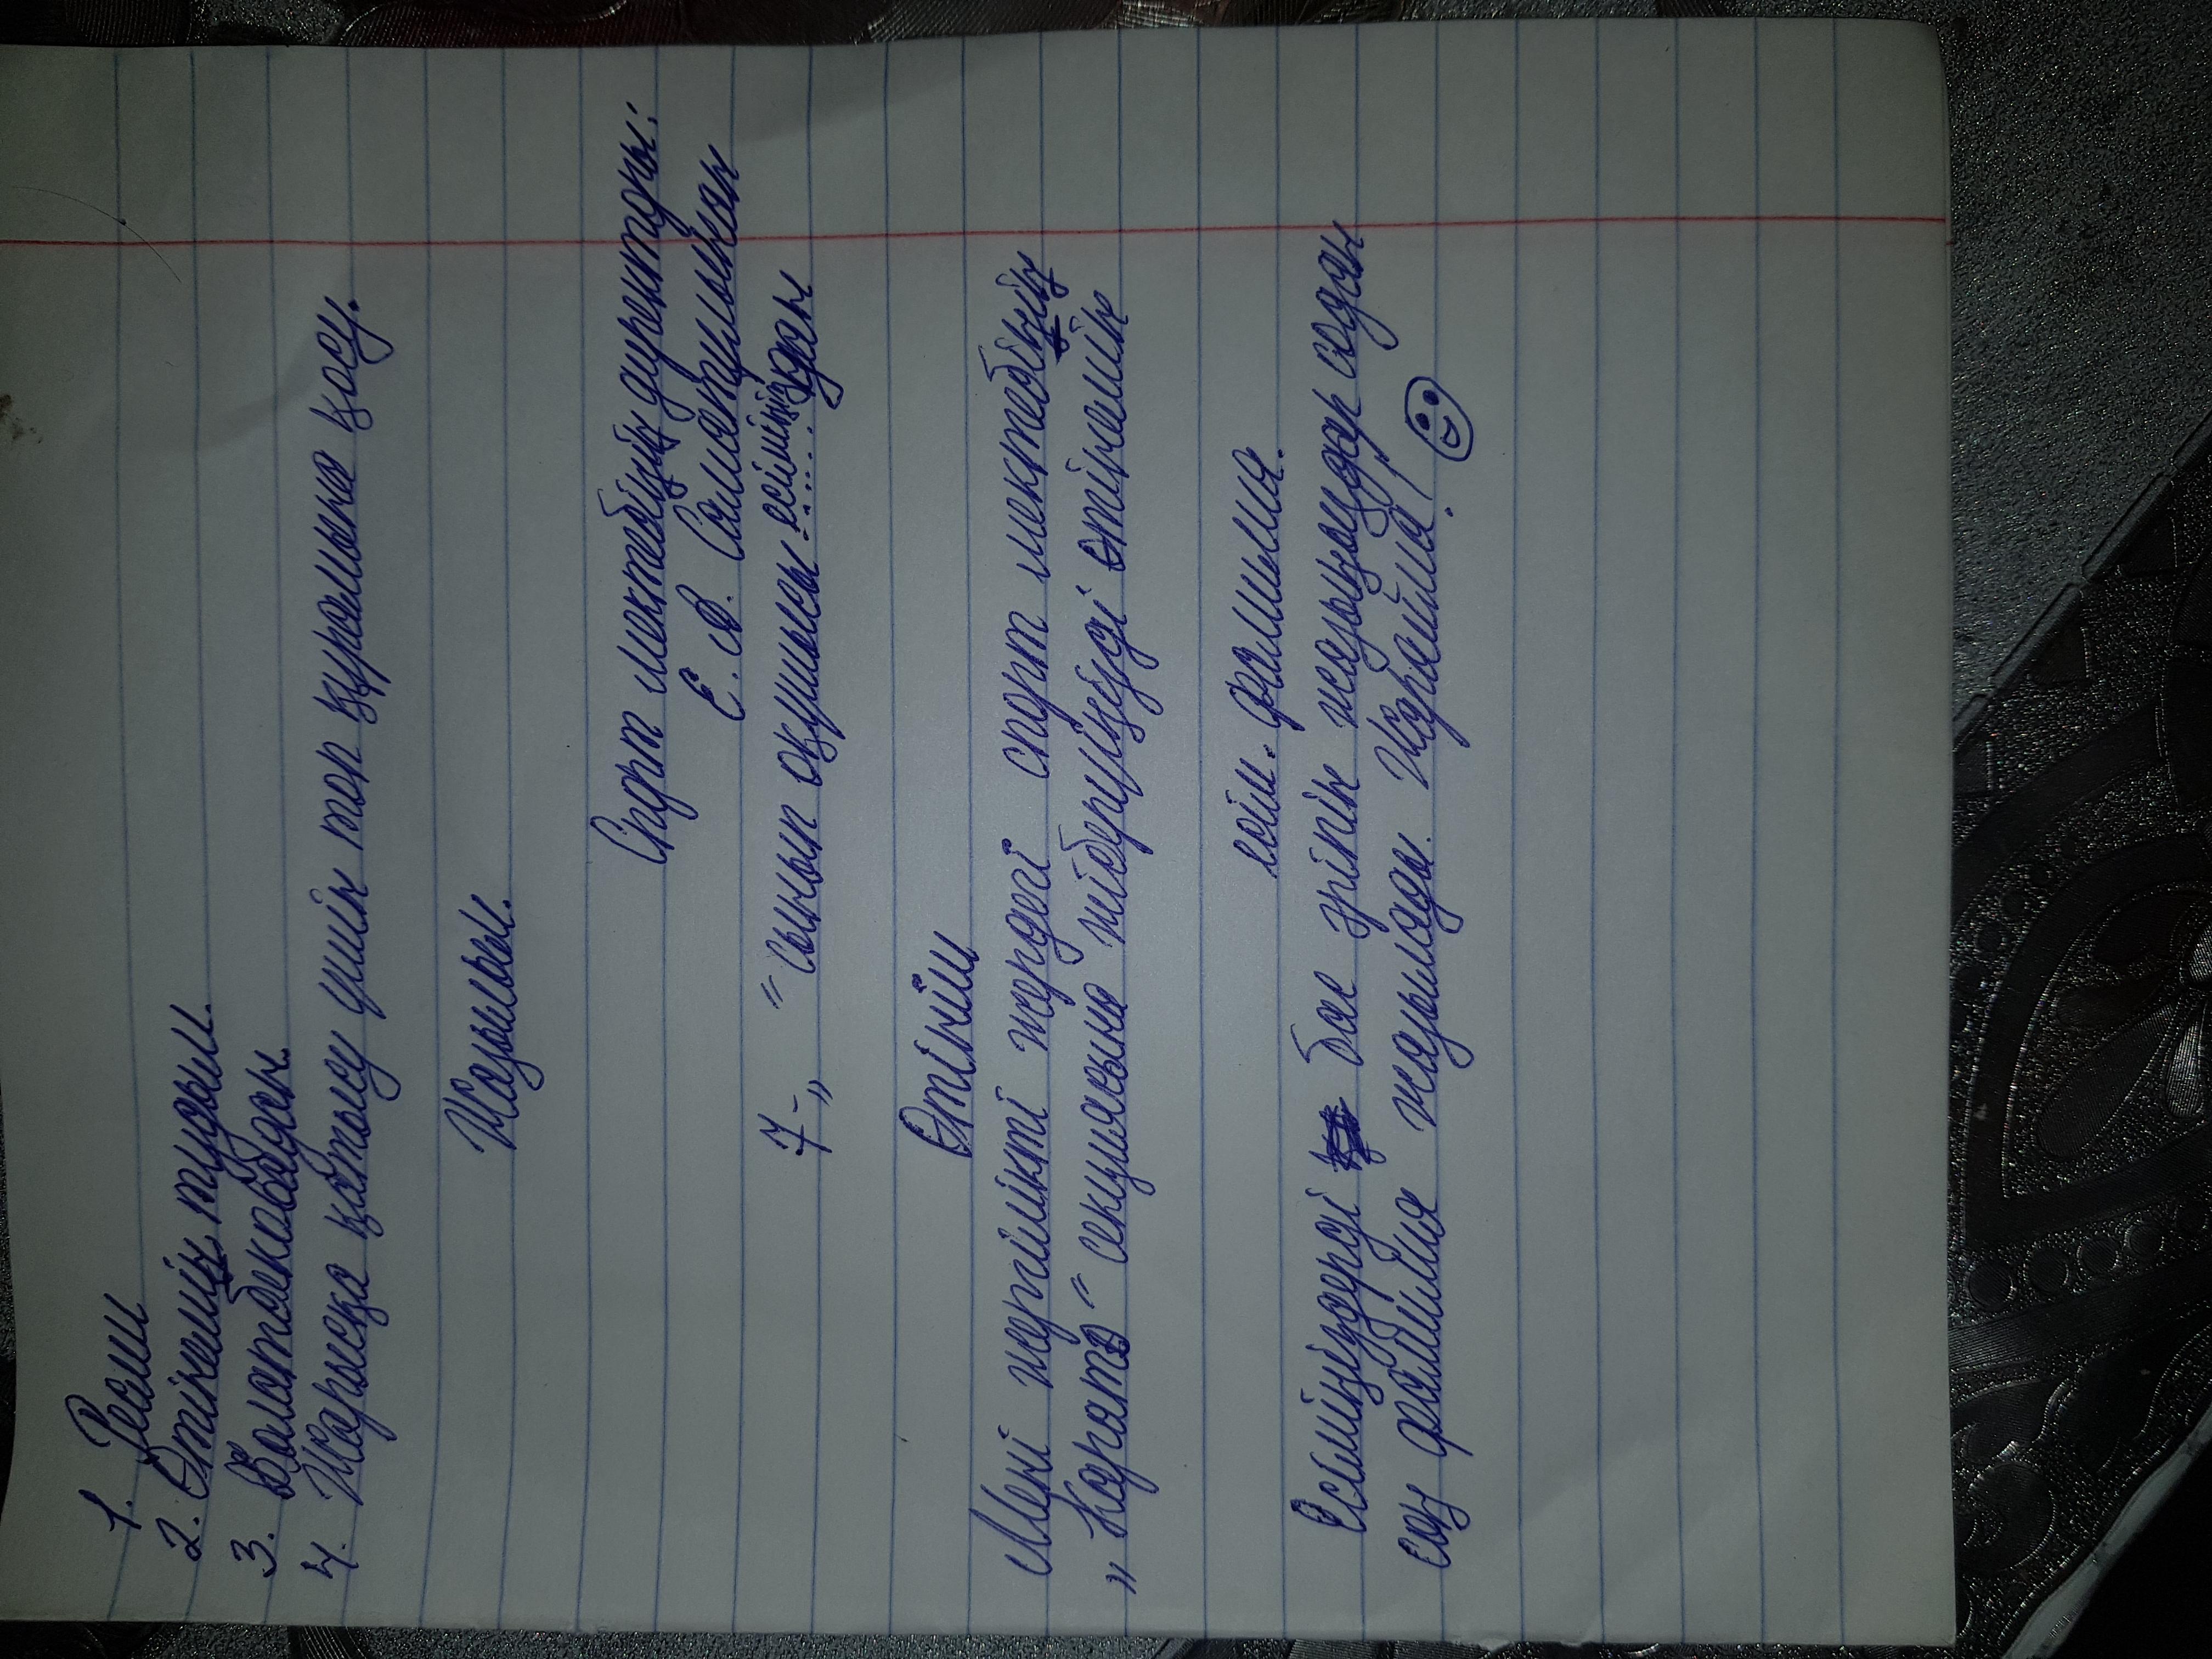 1. Ресми
2. Өтініміңіз туралы.
3. Болатбековадан.
4. Жарысқа қатысу үшін топ құрамына қосу.
Жазылым.
Спорт мектебінің директоры:
Е. А.
7-„ " сынып оқушысы есімің.....дан
Өтініш
Мені жергілікті жердегі спорт мектебінің
„Карате" секциясына жіберуіңізді өтінемін
есім. фамилия.
Есіміңіздерді бас әріпін жазыңыздар содан
соң фамилия жазылады. Жарайма!